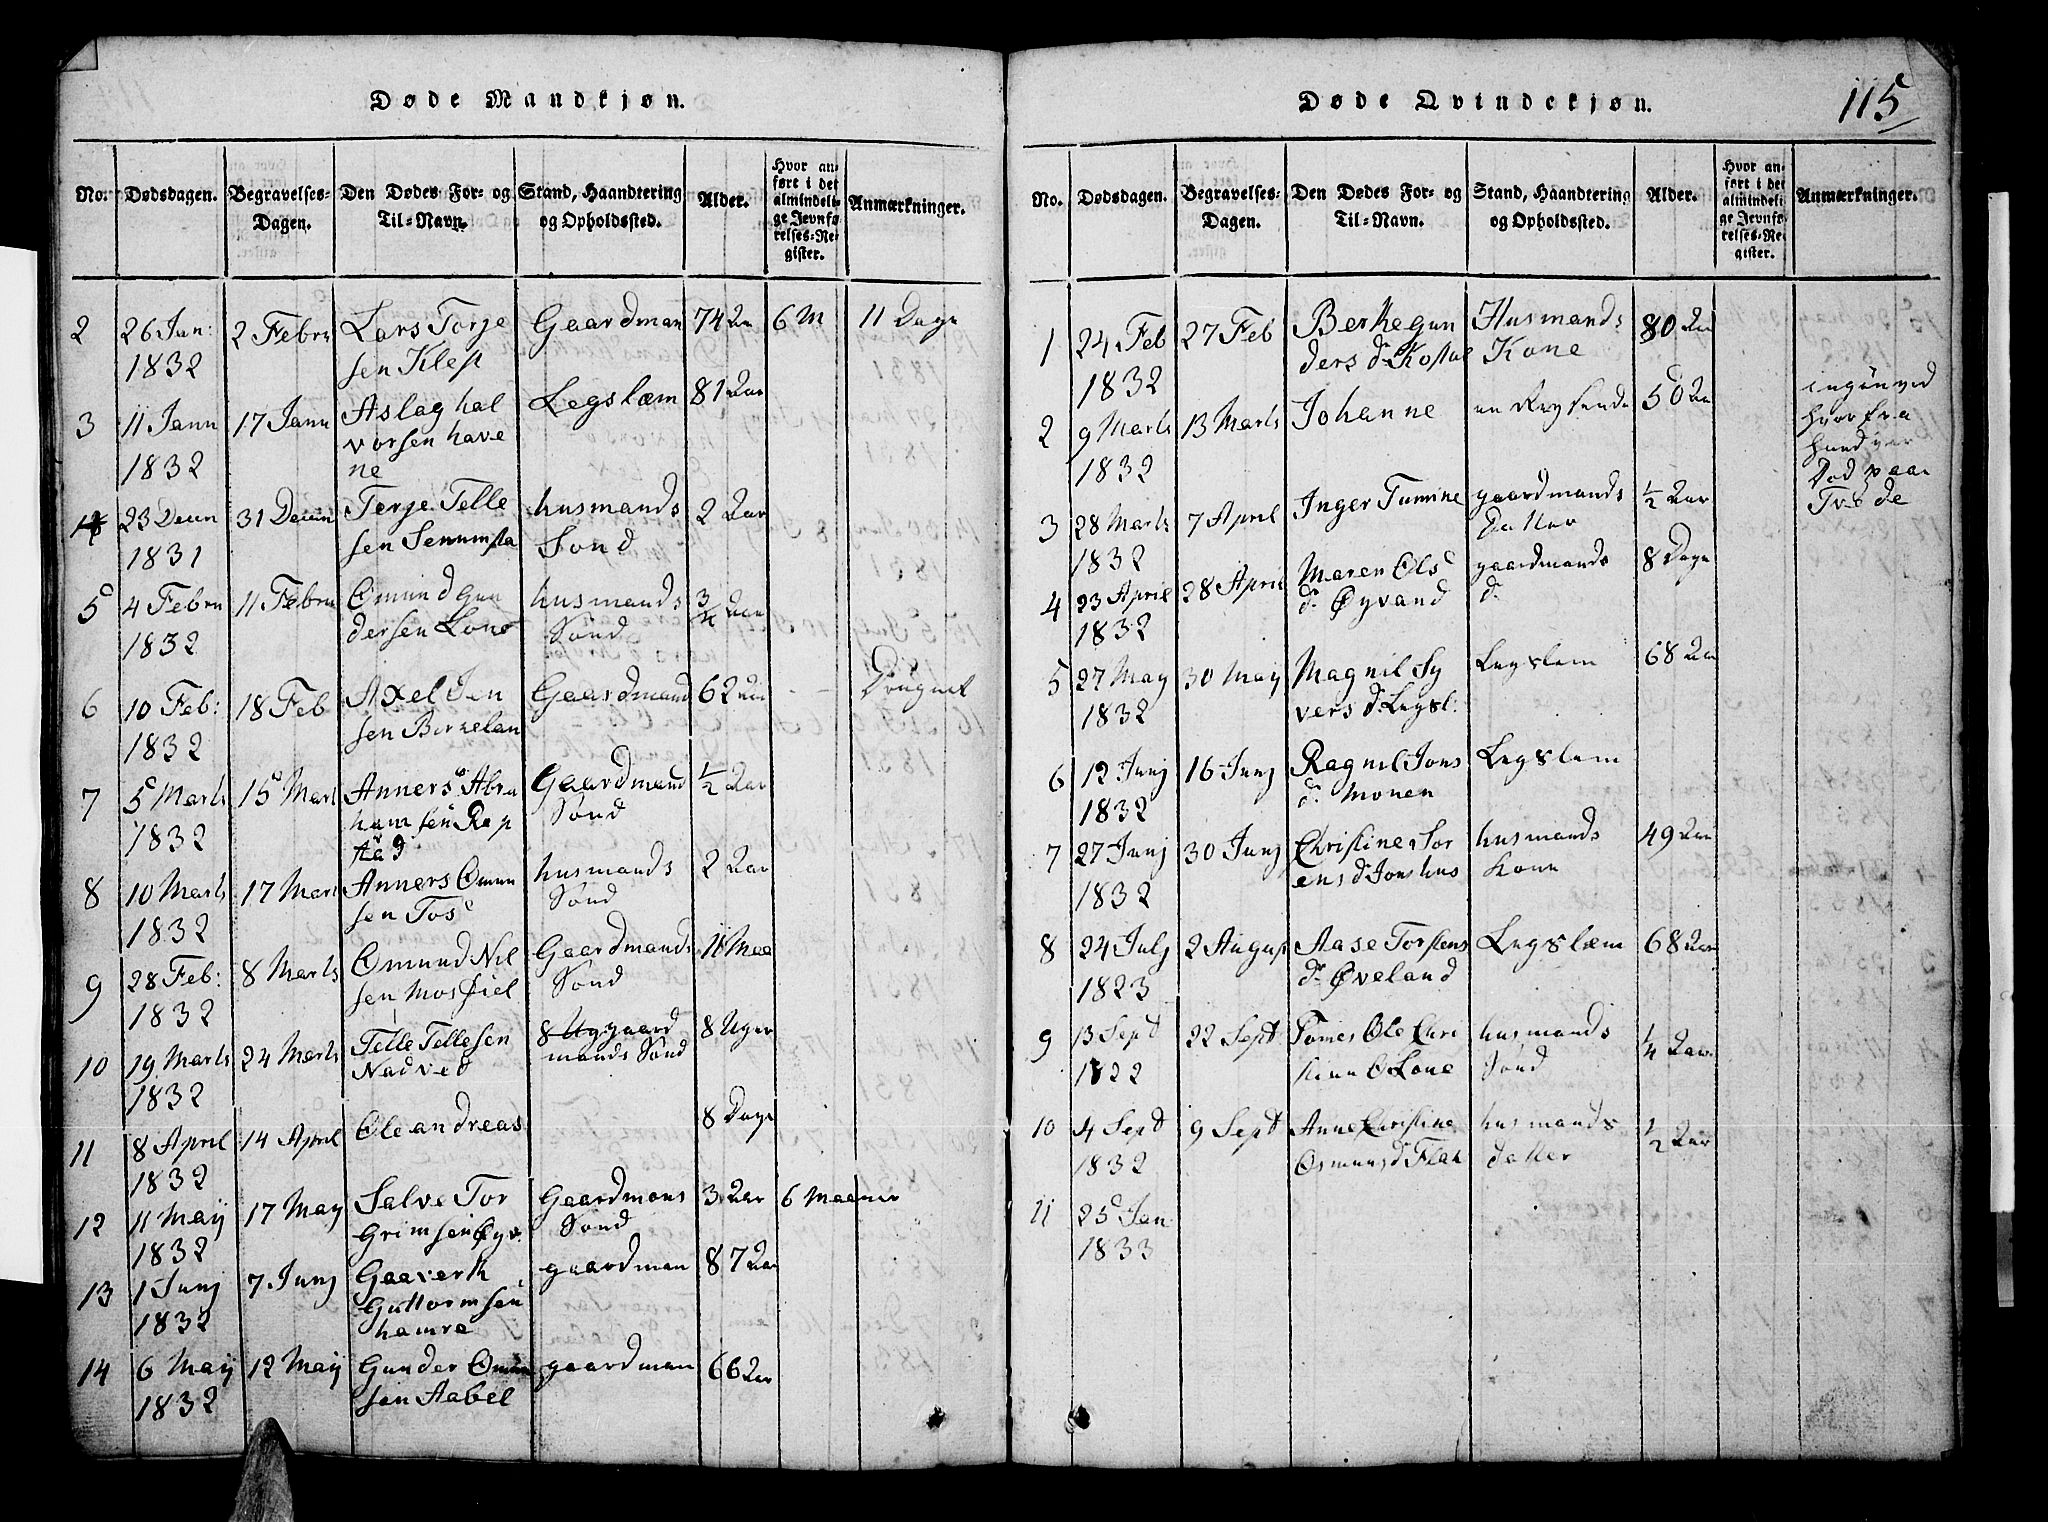 115
Døde Mandkjøn.
No. Dødsdagen. Begravelses-Dagen. Den Dødes For- og Til-Navn. Stand, Haandtering og Opholdssted. Alder. Hvor anført i det almindelige Jevnførelses-Register. Anmærkninger.
2 26 Jan: 2 Febru Lars Torje Gaardman 74 Aa 6 M 11 Dage
1832 sen Klep
3 11 Jann 17 Jann Aslag hal Legslæm 81 Aar
vorsen have
1832 ne
4 23 Decm 31 Decm Terje Telle husmands 2 Aar
1831 sen Sennumsta Sond
5 4 Febru 11 Febru Omund Gun husmands 3/4 Aar
1832 dersen Lone Sond
6 10 Feb: 18 Feb Axel Jen Gaardmand 62 Aar - -
1832 sen Birkelan
7 5 Marts 15 Mart Anners Abra Gaardmand 1/2 Aar
1832 hamsen Rap Sond
stad
8 10 Marts 17 Mart Anners Omun husmands 2 Aar
1832 sen Tos Sond
9 28 Feb: 8 Marts Omund Nil Gaardmands 11 Maa
1832 sen Mosfiel Sond
10 19 Marts 24 Marts Telle Tellesen 8 Ug gaard 8 Uger
1832 Nadved mands Sond
11 8 April 14 April Ole andreas 8 Dage
1832
12 11 Maij 17 May Salve Tor Gaardmans 3 Aar 6 Maaner
1832 Grimsen Øyv. Sond
13 1 Junj 7 Junj Gaaverk gaardman 87 Aar
1832 Guttormsen
hamre
14 6 Maij 12 Maij Gunder Omun gaardman 66 Aar
1832 sen Aabel
Døde Qvindekjøn.
No. Dødsdagen. Begravelses-Dagen. Den Dødes For- og Til-Navn. Stand, Haandtering og Opholdssted. Alder. Hvor anført i det almindelige Jevnførelses-Register. Anmærkninger.
1 24 Feb 27 Feb Berkegun Husmands 80 Aa
1832 ders d. Kostøl Kone
2 9 Marts 13 Marts Johanne en Reysende 50 Aa ingen ved
1832 hvor fra
hund var
Død paa
Tvede
3 28 Marts 7 April Inger Tumine gaardmands 1/2 Aar
1832 Datter
4 23 April 28 April Maren Ols gaardmands 8 Dage
1832 d. Øyvand d.
5 27 May 30 May Magnil Sy Legslem 68 Aar
1832 vers d. Legsl:
6 12 Junj 16 Junj Ragnil Jons Legslem
1832 d. Monen
7 27 Junj 30 Junj Christine Sor husmands 49 Aar
1832 ens d Jonshus Kone
8 24 Julj 2 August Aase Torstens Legslæm 68 Aar
1823 dr Øveland
9 13 Sept 22 Sept Tomes Ole Chri husmands 1/4 Aar
1822 Lone Sond
10 4 Sept 9 Sept Anne Christine husmands 1/2 Aar
1832 Osmunsd Flak datter
11 25 Jan
1833